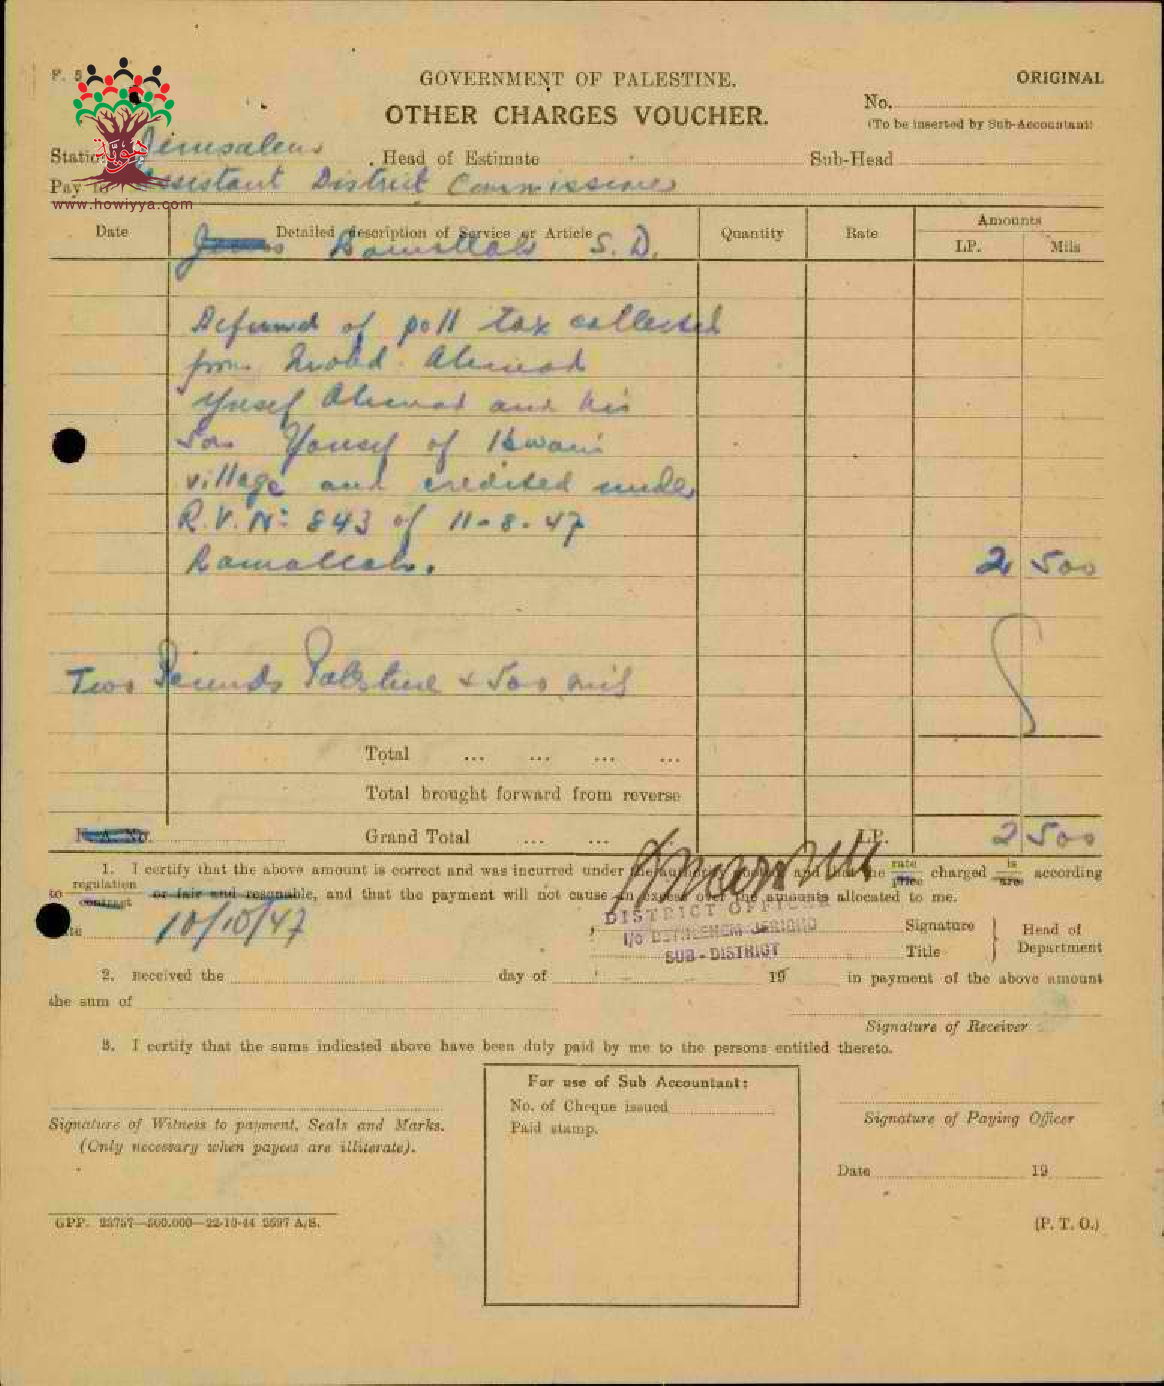 F. 5
GOVERNMENT OF PALESTINE.
ORIGINAL
OTHER CHARGES VOUCHER.
No.
(To be inserted by Sub-Accountant)
Station Jerusalem. Head of Estimate Sub-Head
Pay to Assistant District Commissioner
www.howiyya.com
Date Detailed description of Service or Article Quantity Rate Amounts
LP. Mils
Ramallah S. D.
Refund of poll tax collected
from Mohd. Ahmad
Yusef Ahmad and his
Son Yousef of
village and credited under
R.V. No: 843 of 11-8-47
Ramallah. 2 500
Two Pounds Palestine & 500 mils
Total ... ... ... ...
Total brought forward from reverse
F. A. No. Grand Total ... ... LP. 2 500
1. I certify that the above amount is correct and was incurred under the authority quoted and that the rate price charged is are according
to regulation contract or fair and resonable, and that the payment will not cause an excess over the amounts allocated to me.
Date 10/10/47
DISTRICT OFFICER
I/C BETHLEHEM JERICHO
SUB-DISTRICT
Signature
Title
Head of Department
2. Received the day of 19 in payment of the above amount
the sum of
Signature of Receiver
3. I certify that the sums indicated above have been duly paid by me to the persons entitled thereto.
For use of Sub Accountant:
No. of Cheque issued
Paid stamp.
Signature of Witness to payment, Seals and Marks.
(Only necessary when payees are illiterate).
Signature of Paying Officer
Date 19
GPP. 23757—500.000—22-10-44 2597 A/S.
(P. T. O.)